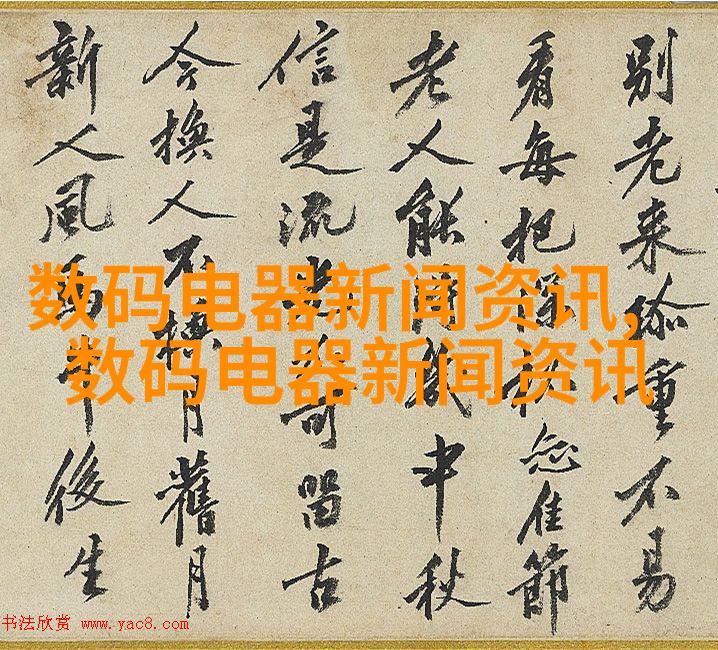 别老来重不易
看每把深杯佳節
老人能得幾中秋
信是流光可留古
今換人不換月舊月
新人風馬牛後生
数码电器新闻资讯,
数码电器新闻资讯
书法欣赏 www.yac8.com